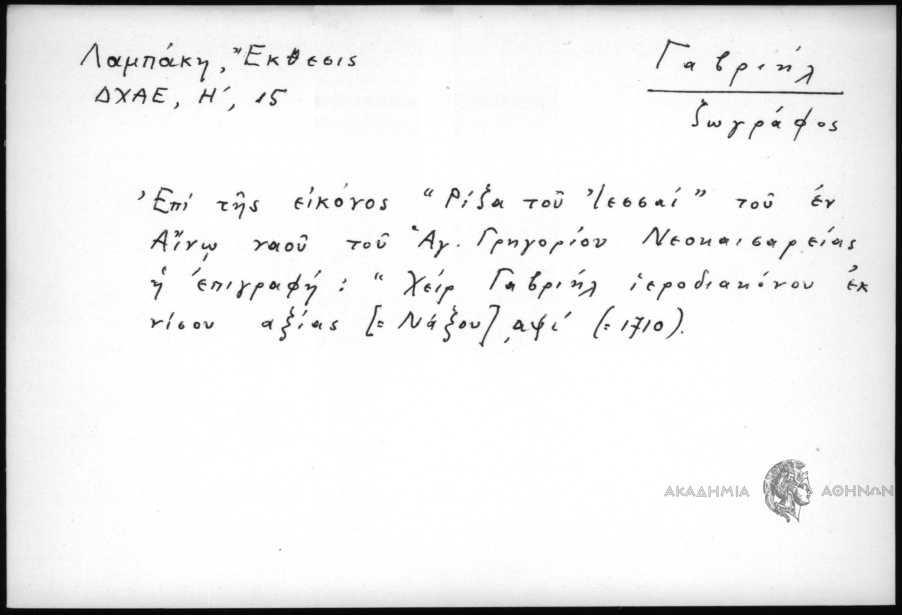 Λαμπάκη, Ἔκθεσις
ΔΧΑΕ, Η΄, 15
Γαβριήλ
ζωγράφος
Ἐπί τῆς εἰκόνος “Ρίζα τοῦ Ἰεσσαί” τοῦ ἐν
Αἴνῳ ναοῦ τοῦ Ἁγ. Γρηγορίου Νεοκαισαρείας
ἡ ἐπιγραφή: “Χείρ Γαβριήλ ἱεροδιακόνου ἐκ
νίσου αξίας [= Νάξου] ͵αψί (= 1710).
ΑΚΑΔΗΜΙΑ ΑΘΗΝΩΝ